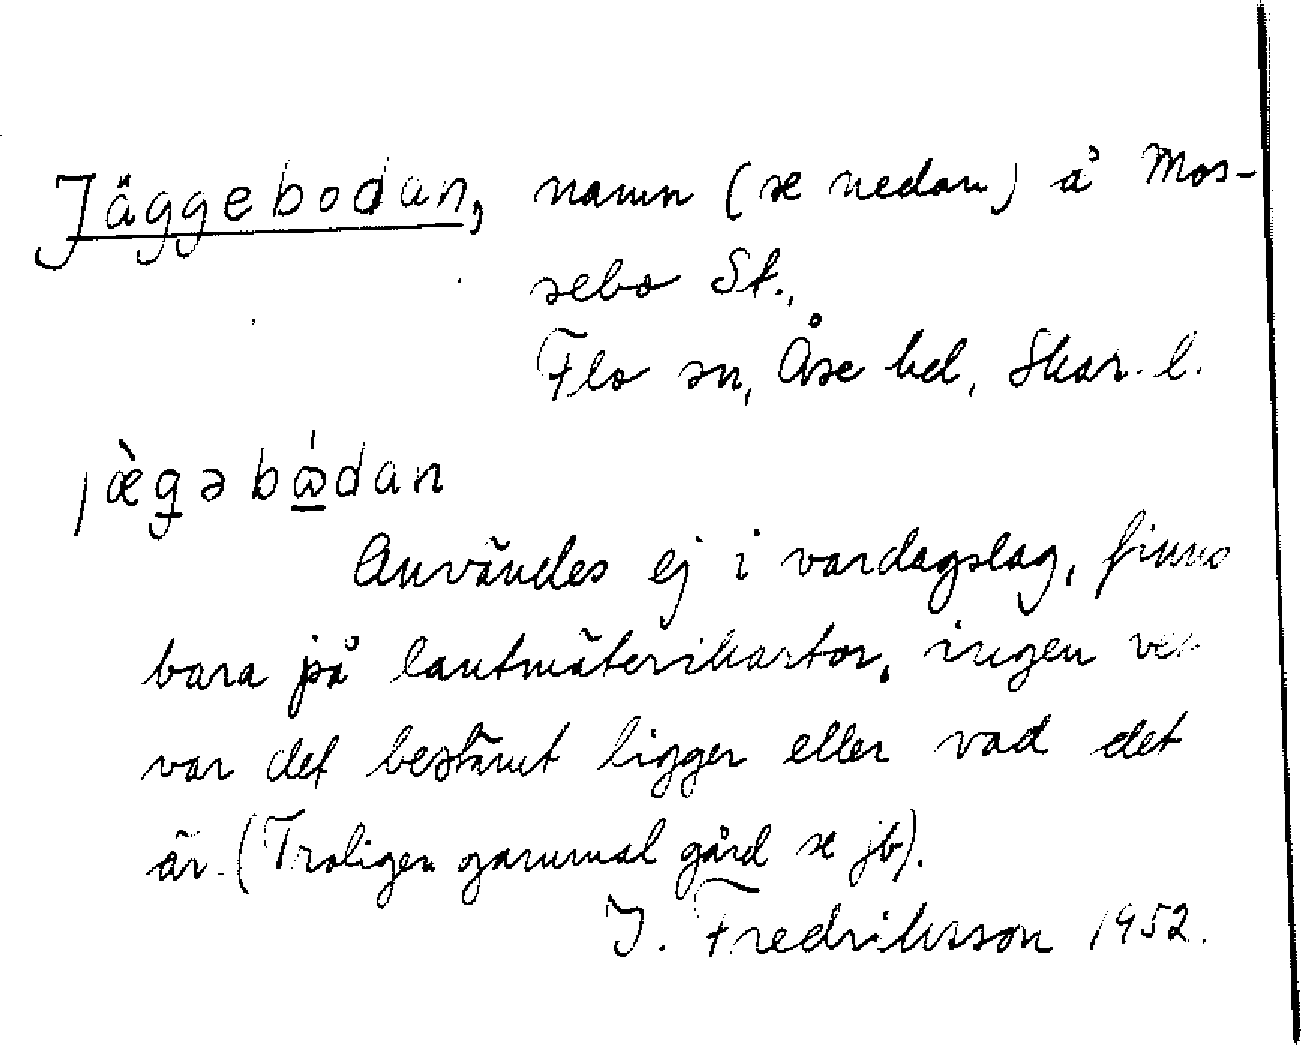 Jäggebodan, namn (se nedan) å Mos-
sebo St.,
Flo sn, Åse hd, Skar. l.
jæ̀gəbɷ́dan
Användes ej i vardagslag, finns
bara på lantmäterikartor, ingen vet
var det bestämt ligger eller vad det
är. (Troligen gammal gård se jb).
I. Fredriksson 1952.